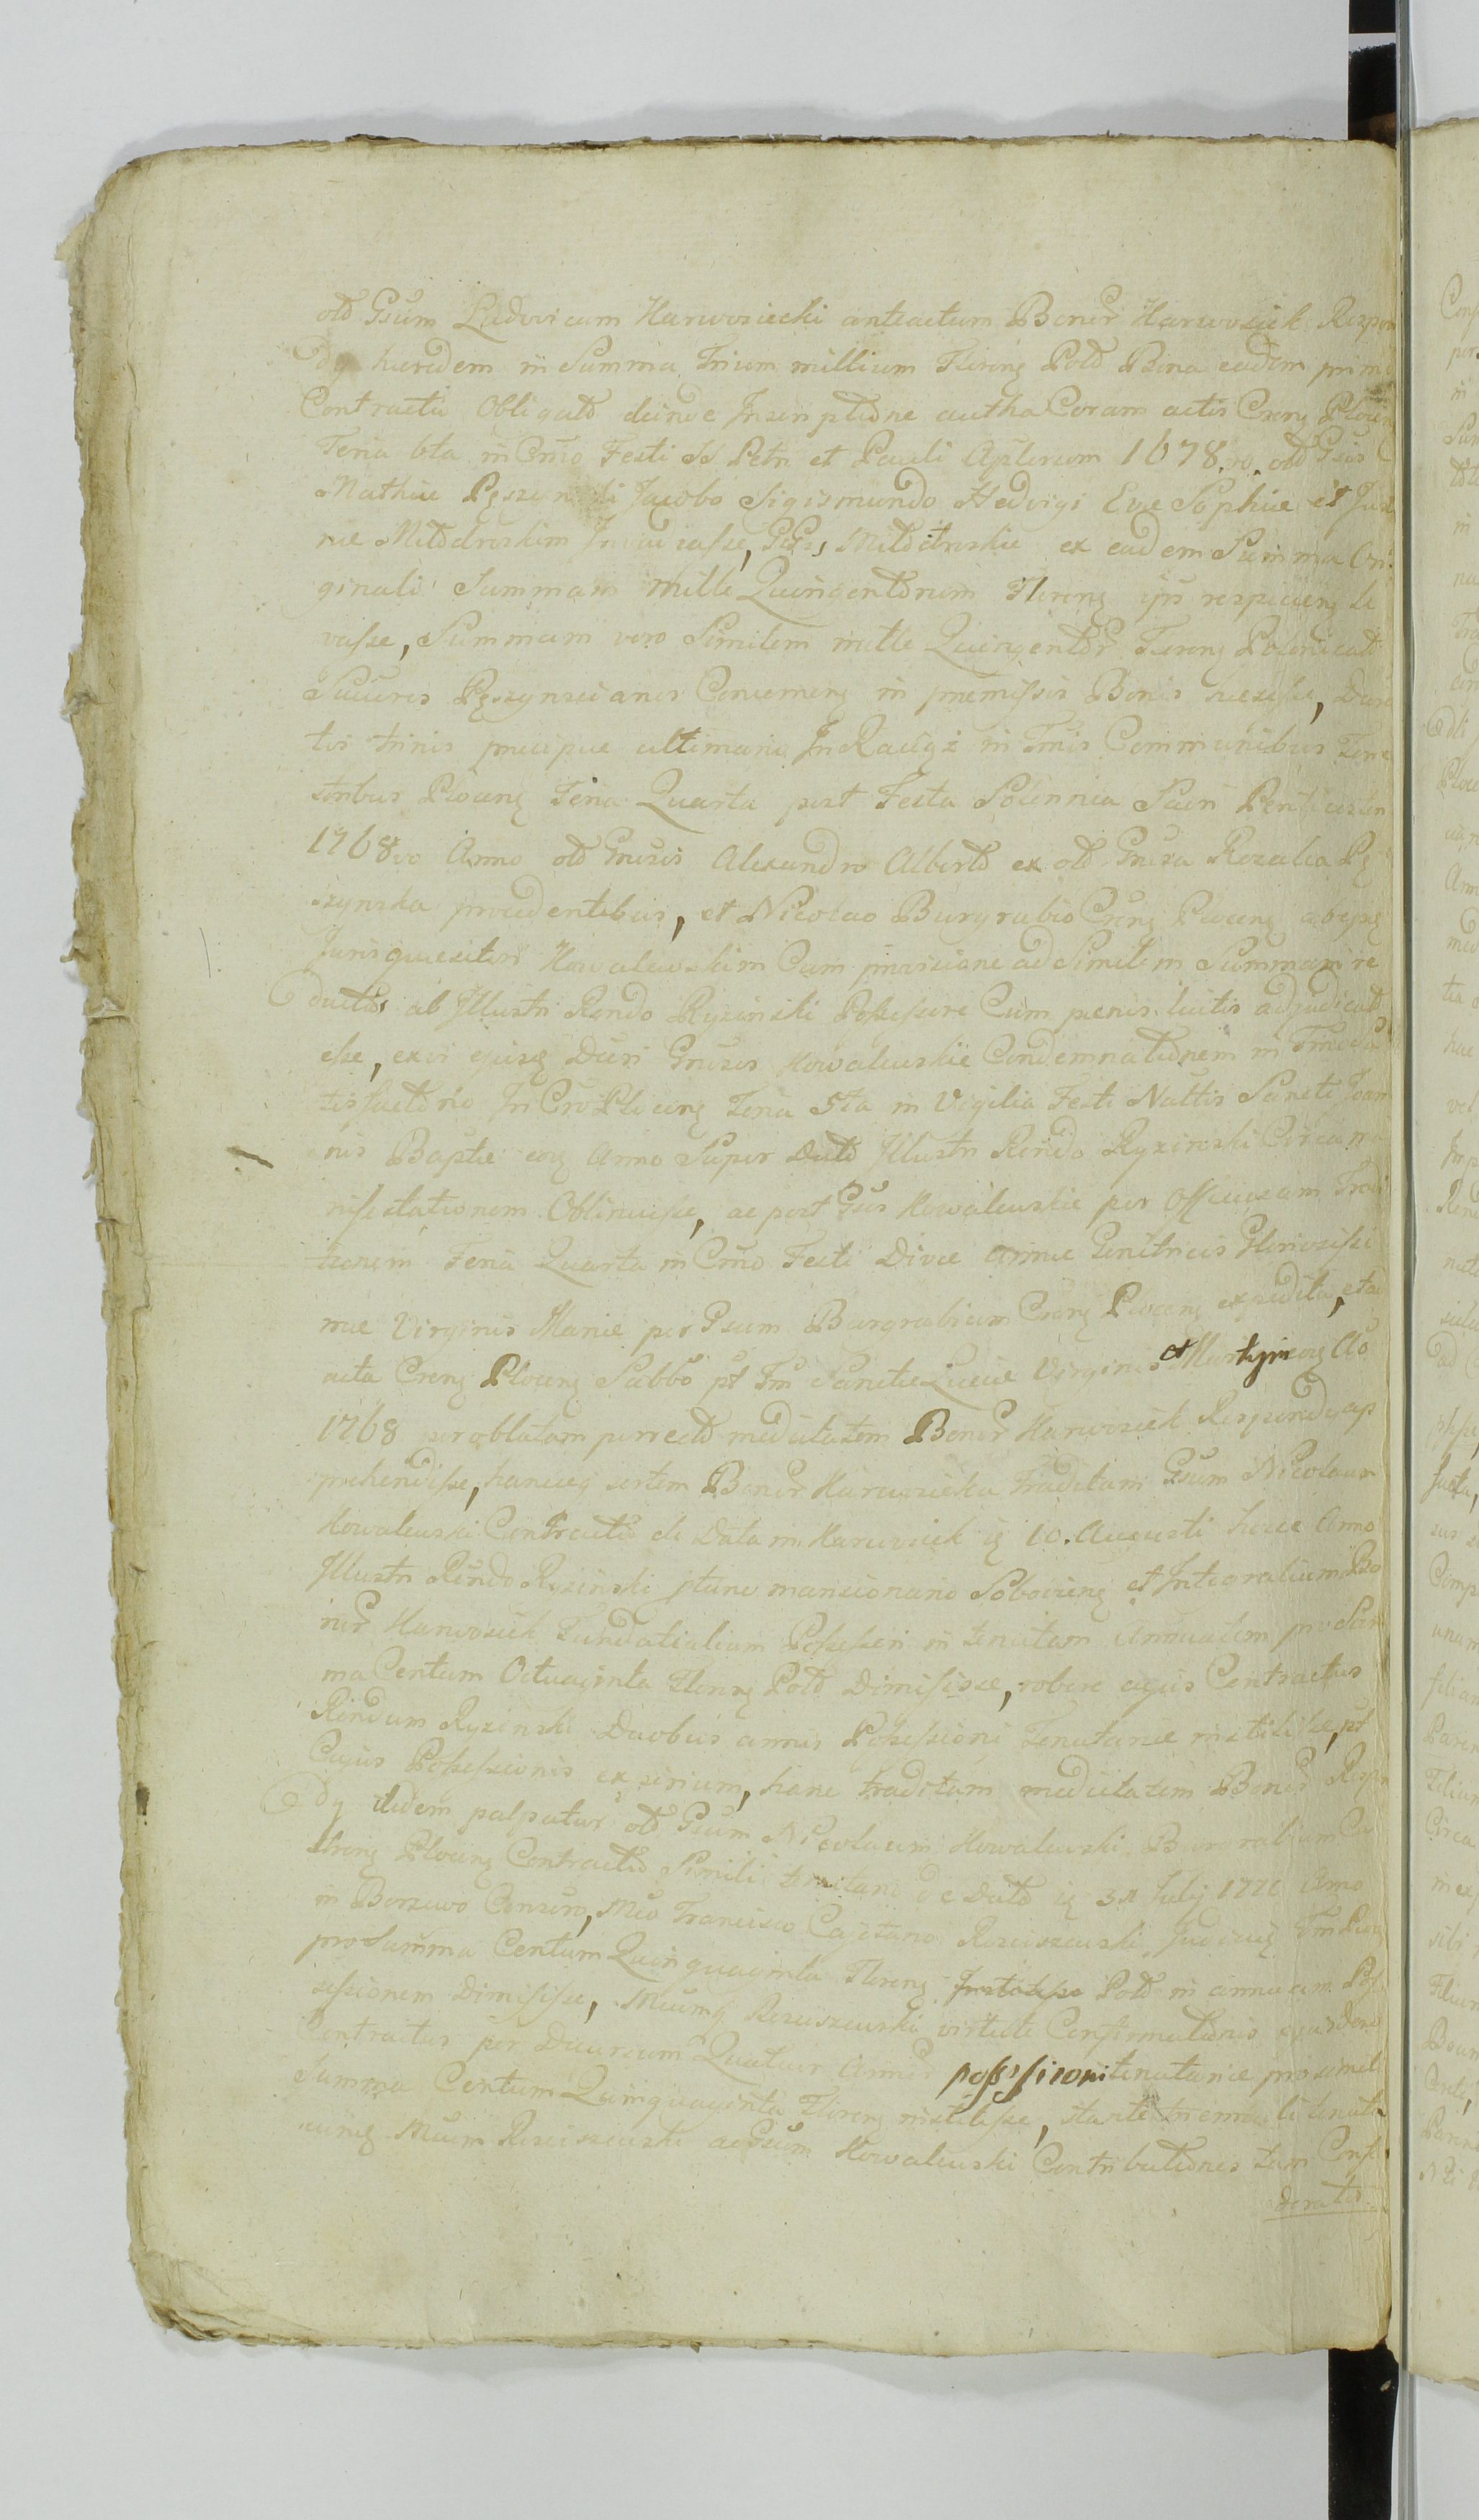 old Gsum Ludovicum Karwosiecki anteactum Bonor Karwosiek Respon
dg haeredem in Summa Trium millium Floreng Pold Bina eadem prima
Contractu Obligato deinde Inscriptione autha Coram actis Creng Ploceng
Feria 6ta in Cro Festi SS Petri et Pauli Aplorum 1678.vo. old Gsis
Mathiae Jacobo Sigismundo Hedvigi Evae Sophiae et
ex eadem Summa Ori
ginali Summam mille Quingentorum Floreng ijs respicieng le
vasse, Summam vero Similem mille Quingentor Floreng Polonicalo
Sucores Pęszynscianos Concerneng in praemissis Bonis
tis trinis praecipue ultimario In Raciąż in Tmis Communibus Terre
stribus Ploceng Feria Quarta post Festa Solennia Sacri Penticosten
1768vo Anno old Gnesis Alexandro Alberto ex old Gnesa Rozalia Pę
szynska procedentibus, et Nicolao Burgrabio Creng Ploceng abeisg
Juris quaesitori Kowalewskim Cum provisione ad Similem Summam re
ducta ab Illustri Rendo Ryzinski Possessore Cum paenis luitis adjudicat
esse, exvi ejusg Dusi Gneses Kowalewskie Condemnationem in
tisfactorio In Cro Ploceng Feria 5ta in Vigilia Festi Nattis Sancti Joan
nis Baptae eog Anno Super Dnto Illustri Rendo Ryzinski Circa ma
nifestationem Obtinuisse, ac post Gses Kowalewskie per Officiosam Tradi
tionem Feria Quarta in Cro Festi Divae Annae Genitricis Gloriosissi
mae Virginis Mariae per Gsum Burgrabium Creng Ploceng expedita, et ad
acta Creng Ploceng Sabbo pt Fm Sanctae Luciae Virginis et Martyris eog Ao
1768 per oblatam porrecta medietatem Bonor Karwosiek Respondg ap
prehendisse, hancceg sortem Bonor Karwosieka Traditam Gsum Nicolaum
Kowalewski Contractu de Data in Karwosiek ię 10. Augusti hocce Anno
Illustri Rendo Ryzinski ptunc mansionario Soboceng et Integralium Bo
nor Karwosiek Fundatialium Possessori in tenutam Annualem pro Sum
ma Centum Octuaginta Floreng Pold Dimisisse, robore cujus Contractus
Rendum Ryzinski Duobus annis Possessioni Tenutariae institisse, pt
Cujus Possessionis exspirium, hanc traditam medietatem Bonor Respon
dg itidem palpatur old Gsum Nicolaum Kowalewski Burgrabium Ca
streng Ploceng Contractu Simili tenutario de Dato ię 30 Julij 1770 Anno
in Borzewo Consero, Mco Francisco Cajetano Rosciszewski Judicię Tm Ploceng
pro Summa Centum Quinquaginta Floreng Pold in annuam Pos
sessionem Dimisisse, Mcumg Rosciszewski virtute Confirmationis ejusdem
Contractus per Ductum Quatuor Annor possessioni tenutariae pro simili
Summa Centum Quinquaginta Floreng institisse, stante triennali tenuta
cumg Mcum Rosciszewski ac Gsum Kowalewski Contributiones tam Confe
derato